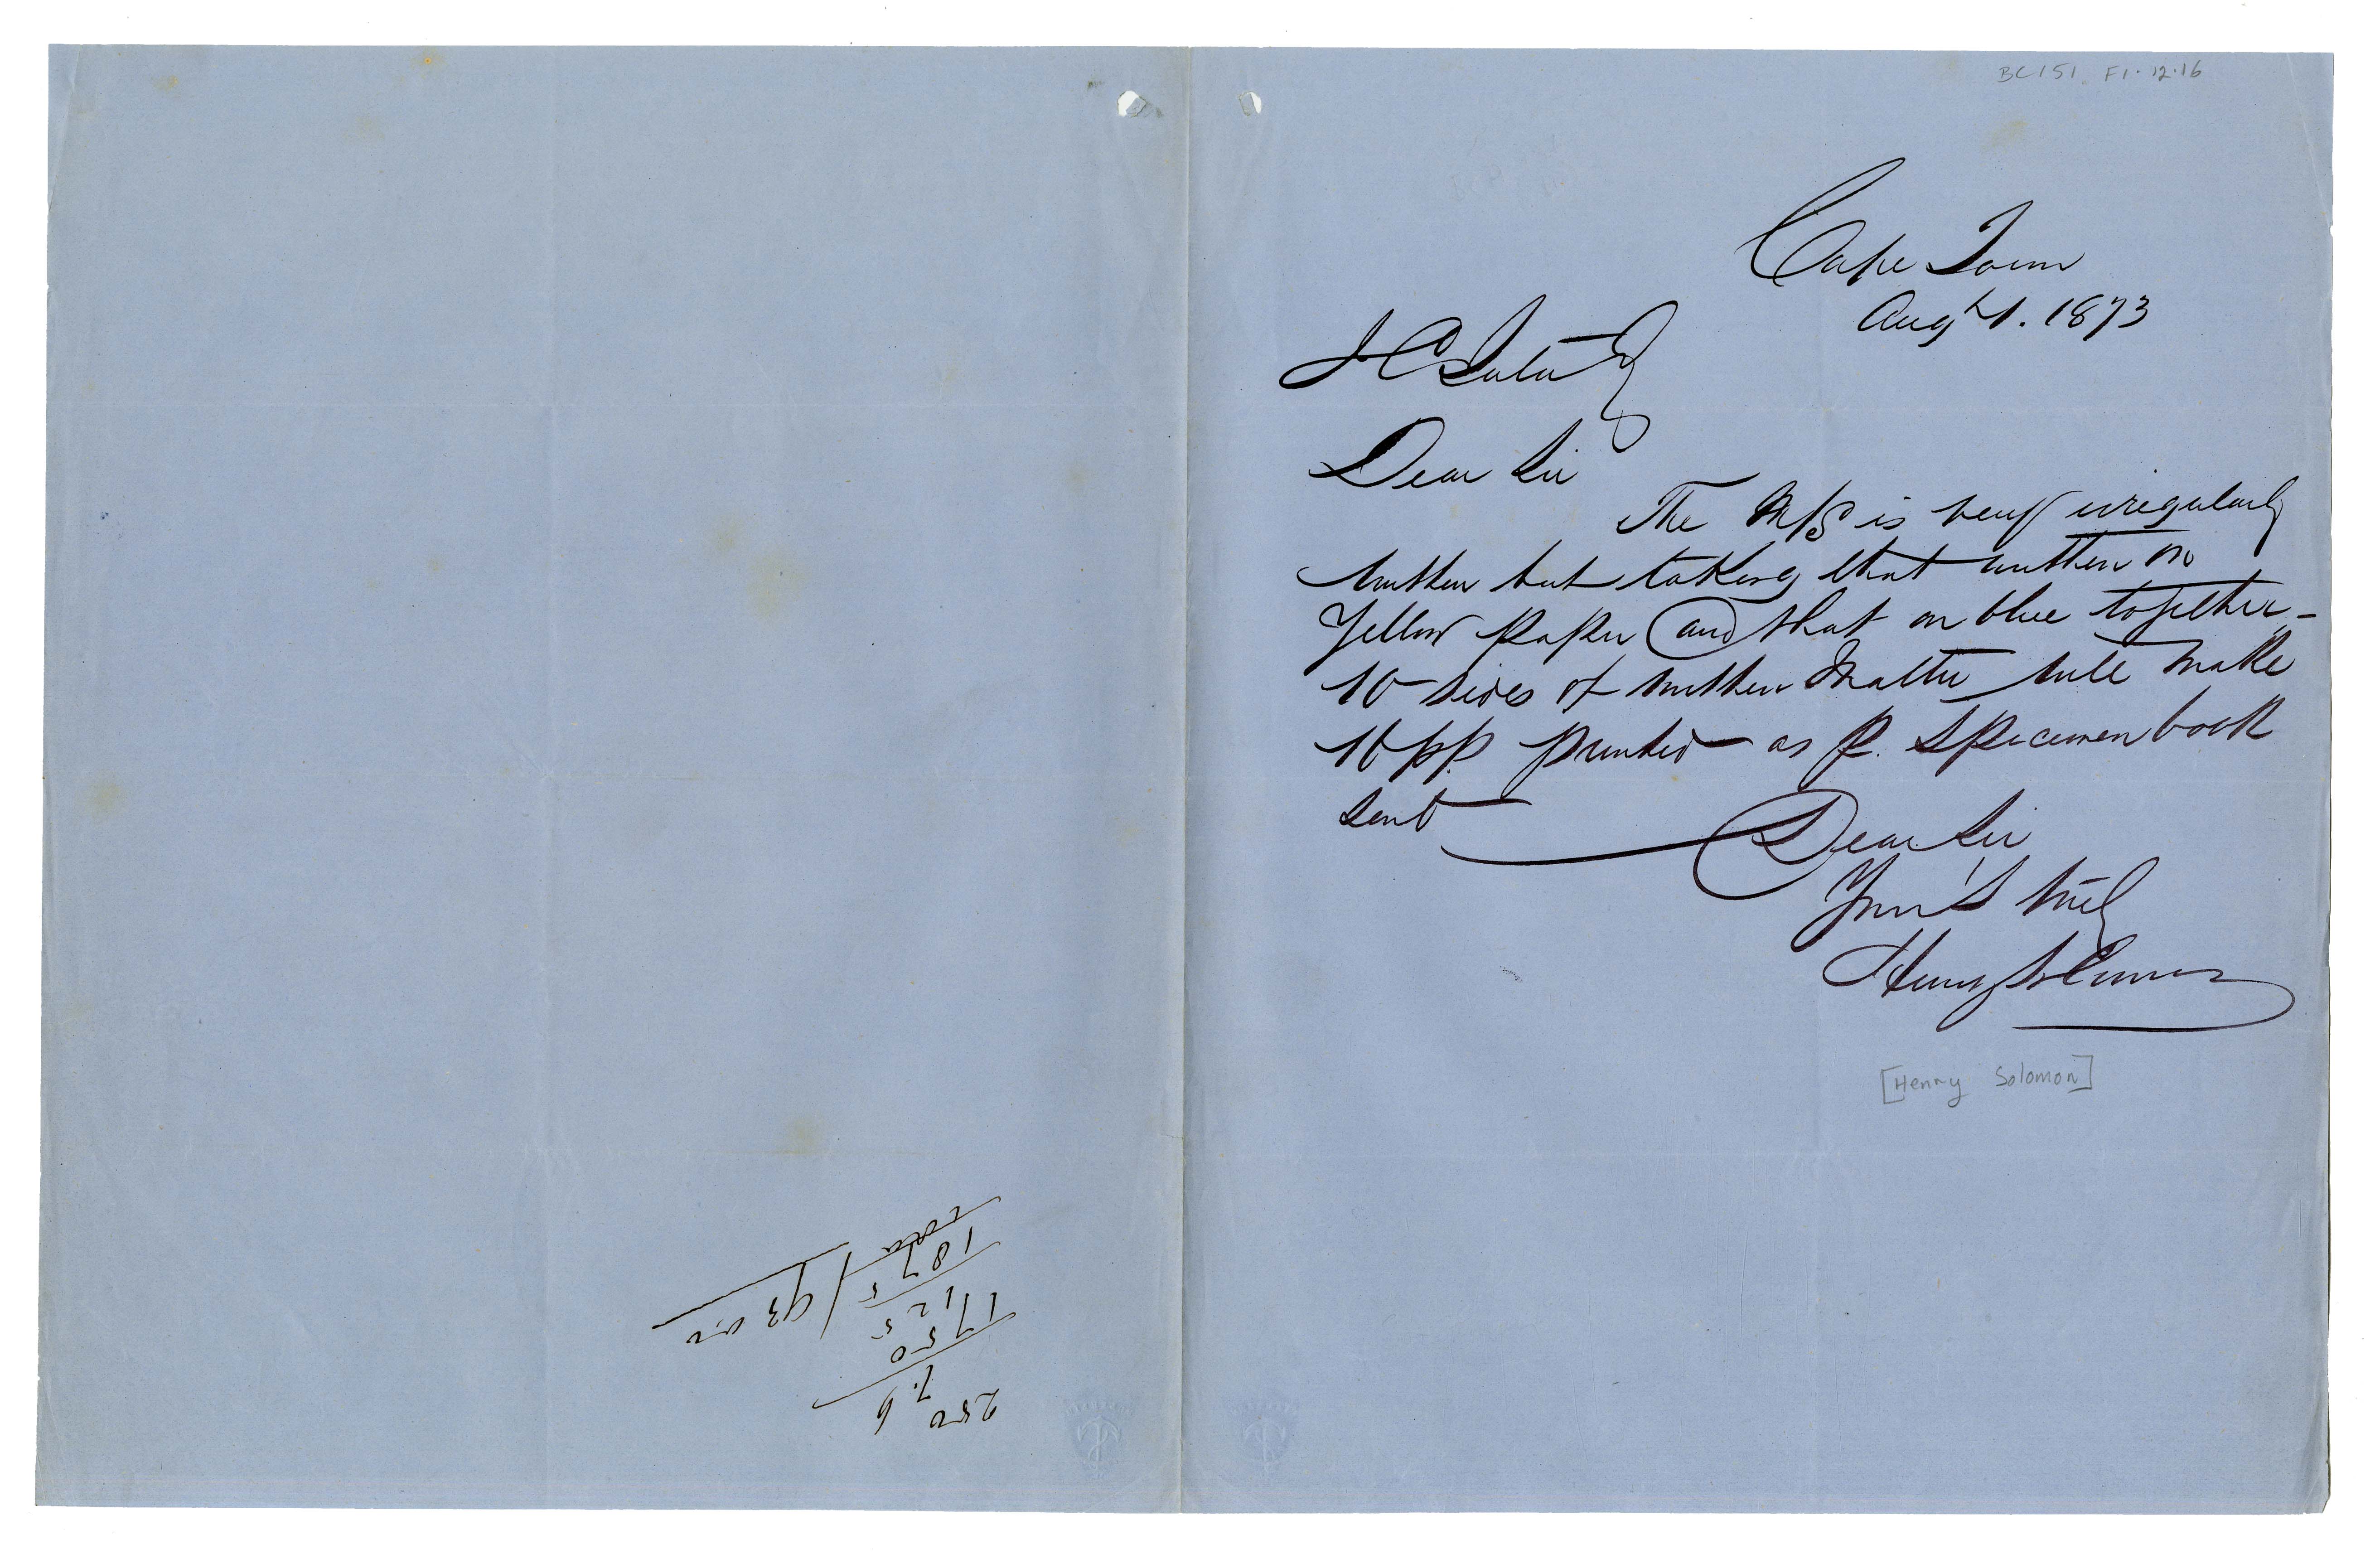 BC151 F1.12.16
Cape Town
Augt 1. 1873
J C
Dear Sir
The M/S is very irregularly
written but taking that written on
Yellow paper and that on blue together –
10 sides of written Matter will make
16 pp. printed – as p. Specimen book
sent
Dear Sir
Your's truly
Henry Solomon
[Henry Solomon]
250
7.6
1750
125
1875